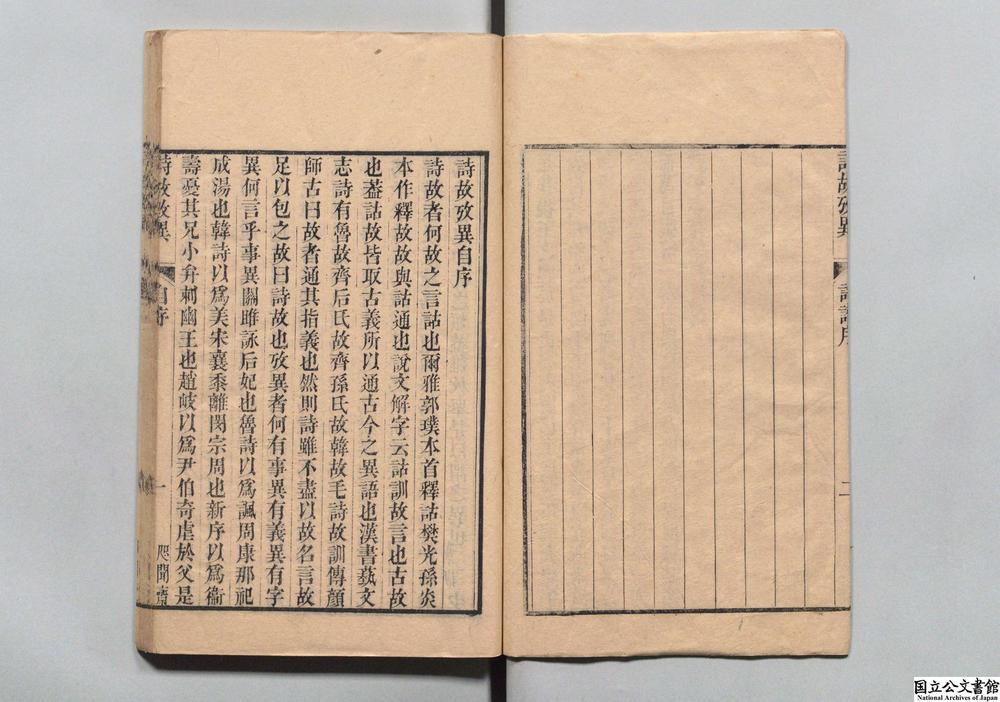 詩故攷異
二
詩故攷異自序
詩故者何故之言詁也爾雅郭璞本首釋詁樊光孫炎
本作釋故故與詁通也說文解字云詁訓故言也古故
也葢詁故皆取古義所以通古今之異語也漢書蓺文
志詩有魯故齊后氏故齊孫氏故韓故毛詩故訓傳顏
師古曰故者通其指義也然則詩雖不盡以故名言故
足以包之故曰詩故也攷異者何有事異有義異有字
異何言乎事異關雎詠后妃也魯詩以爲諷周康那祀
成湯也韓詩以爲美宋襄黍離閔宗周也新序以爲衞
壽憂其兄小弁刺幽王也趙岐以爲尹伯奇虐於父是
詩故攷異
自序
一
咫聞齋
国立公文書館
National Archives of Japan